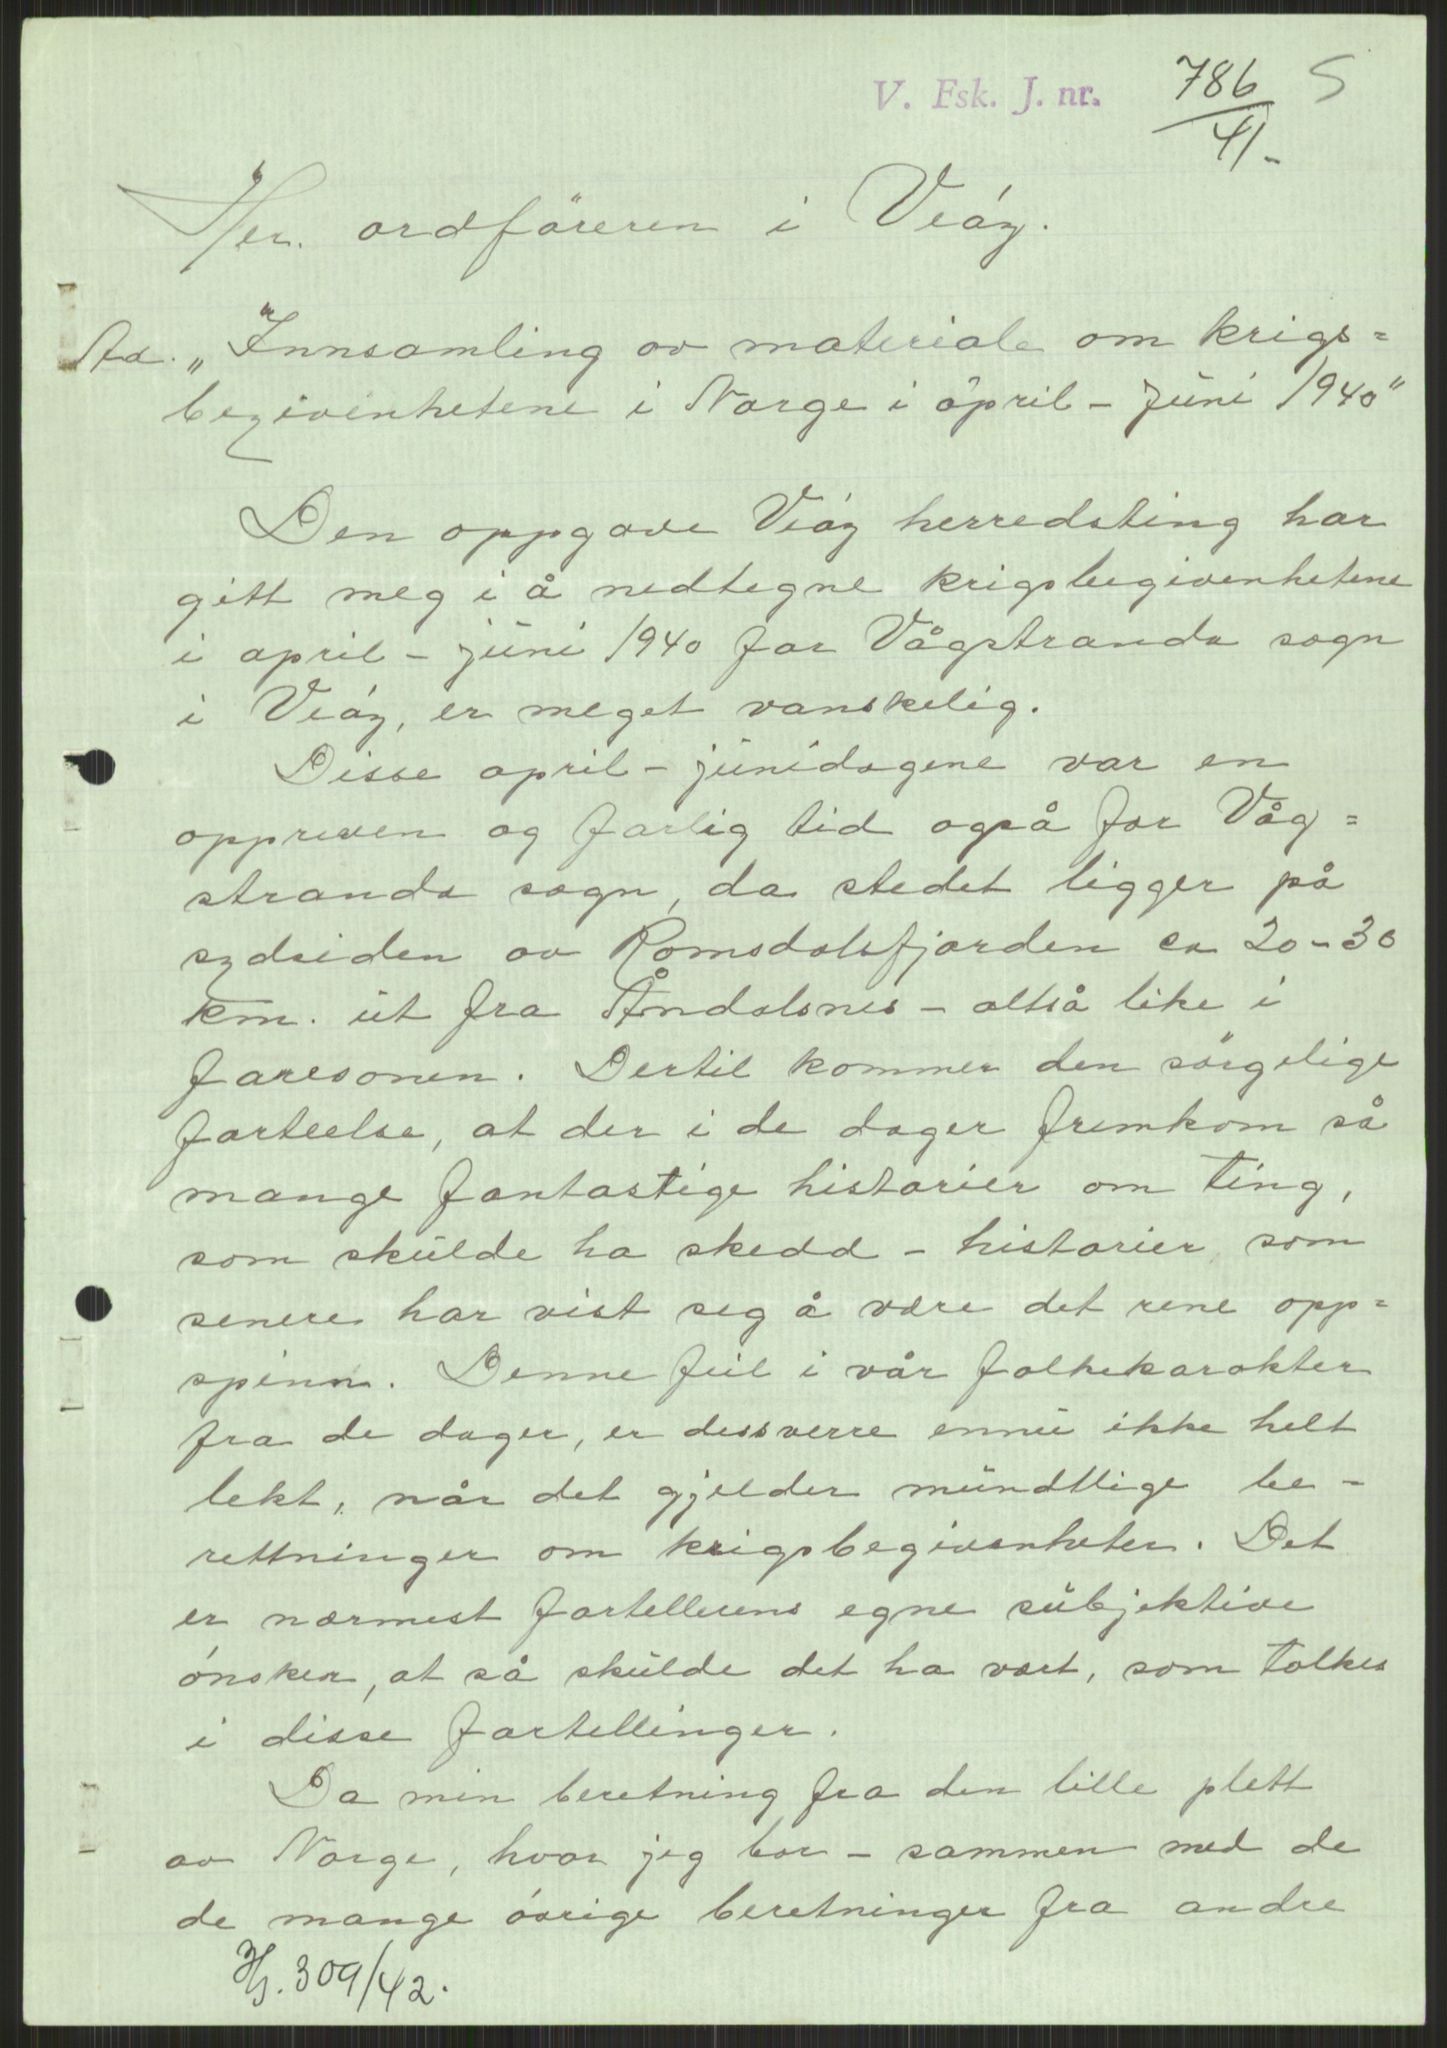 V. Fsk. J. nr. 786 S
41-
Her. ordföreren i Veöy.
Ad. „Innsamling av materiale om krigs=
begivenhetene i Norge i april - juni 1940"
Den oppgave Veöy herredsting har
gitt meg i å nedtegne krigsbegivenhetene
i april - juni 1940 for Vågstranda sogn
i Veöy, er meget vanskelig.
Disse april - junidagene var en
oppreven og farlig tid også for Våg=
stranda sogn, da stedet ligger på
sydsiden av Romsdalsfjorden ca 20-30
km. ut fra Åndalsnes - altså like i
faresonen. Dertil kommer den sörgelige
forteelse, at der i de dager fremkom så
mange fantastige historier om ting,
som skulde ha skedd - historier, som
senere har vist seg å være det rene opp=
spinn. Denne feil i vår folkekarakter
fra de dager, er dessverre ennu ikke helt
lekt, når det gjelder mundtlige be-
rettninger om krigsbegivenheter. Det
er nærmest fortellerens egne subjektive
önsker, at så skulde det ha vært, som tolkes
i disse fortellinger.
Da min beretning fra den lille plett
av Norge, hvor jeg bor - sammen med de
de mange övrige beretninger fra andre
309/42.